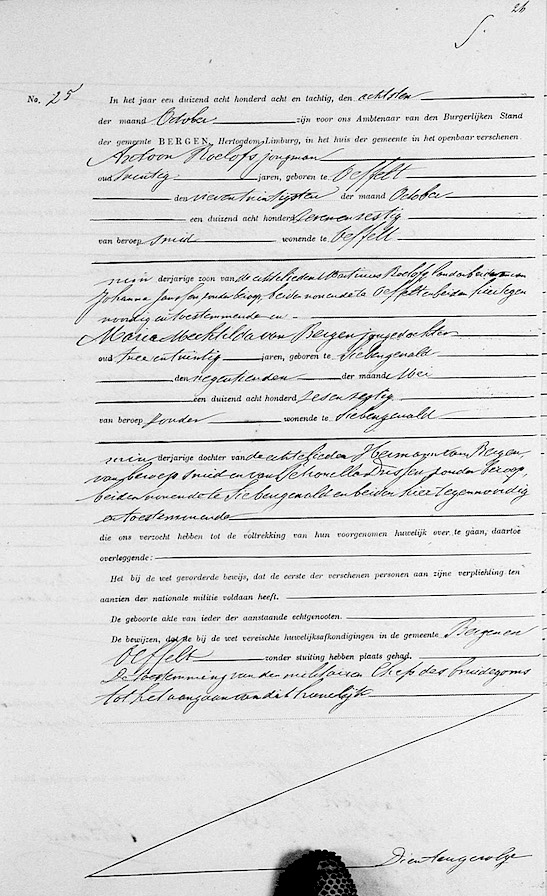 26
S.
No. 25 In het jaar een duizend acht honderd acht en tachtig, den achtsten
der maand October zijn voor ons Ambtenaar van den Burgerlijken Stand
der gemeente BERGEN, Hertogdom Limburg, in het huis der gemeente in het openbaar verschenen
Antoon Roelofs jongman
oud twintig jaren, geboren te Oeffelt
den nevenentwintigsten der maand October
een duizend acht honderd zevenenzestig
van beroep smid wonende te Oeffelt
min derjarige zoon van de echtelieden Martinus Roelofs landarbeider en van
Johanna Jansen zonder beroep, beiden wonende te Oeffelt en beiden hier tegen
woordig en toestemmende en
Maria Mechtilda van Bergen jongedochter
oud twee en twintig jaren, geboren te Siebengewald
den negentienden der maand Mei
een duizend acht honderd zesenzestig
van beroep zonder wonende te Siebengewald
min derjarige dochter van de echtelieden Hermann van Bergen,
van beroep smid en van Petronella Drissen, zonder beroep,
beiden wonende te Siebengewald en beiden hier tegenwoordig
en toestemmende
die ons verzocht hebben tot de voltrekking van hun voorgenomen huwelijk over te gaan, daartoe
overleggende:
Het bij de wet gevorderde bewijs, dat de eerste der verschenen personen aan zijne verplichting ten
aanzien der nationale militie voldaan heeft.
De geboorte akte van ieder der aanstaande echtgenooten.
De bewijzen, dat de bij de wet vereischte huwelijksafkondigingen in de gemeente Bergen en
Oeffelt zonder stuiting hebben plaats gehad.
De toestemming van den militairen Chef des bruidegoms
tot het aangaan van dit huwelijk
Dientengevolge